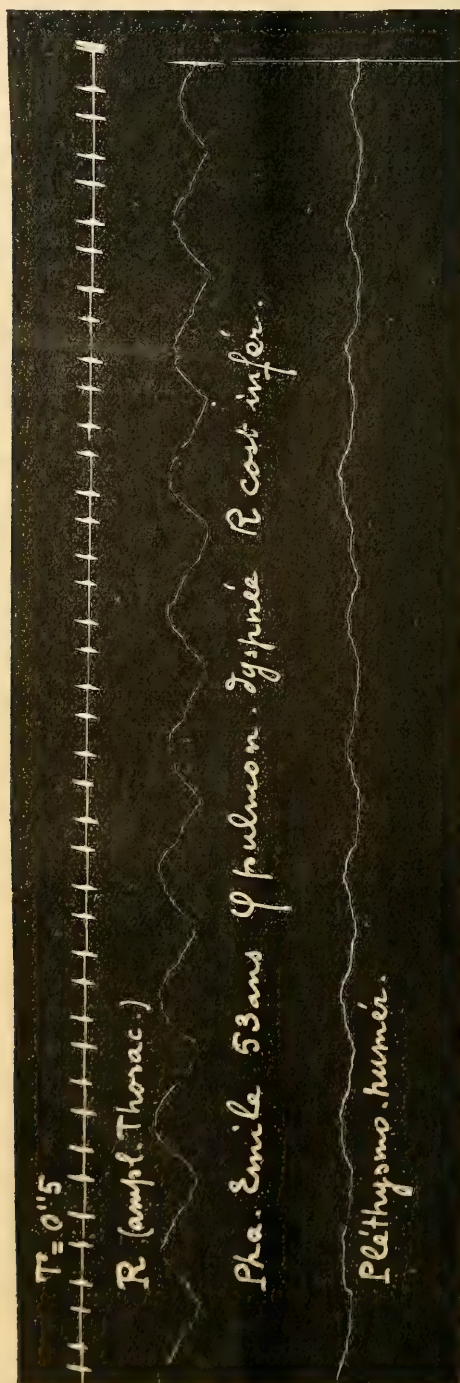 T = 0"5
R (ampl. Thorac.)
Pha. Emile 53 ans φ pulmon. dyspnée R cost infér.
Pléthysmo. humér.